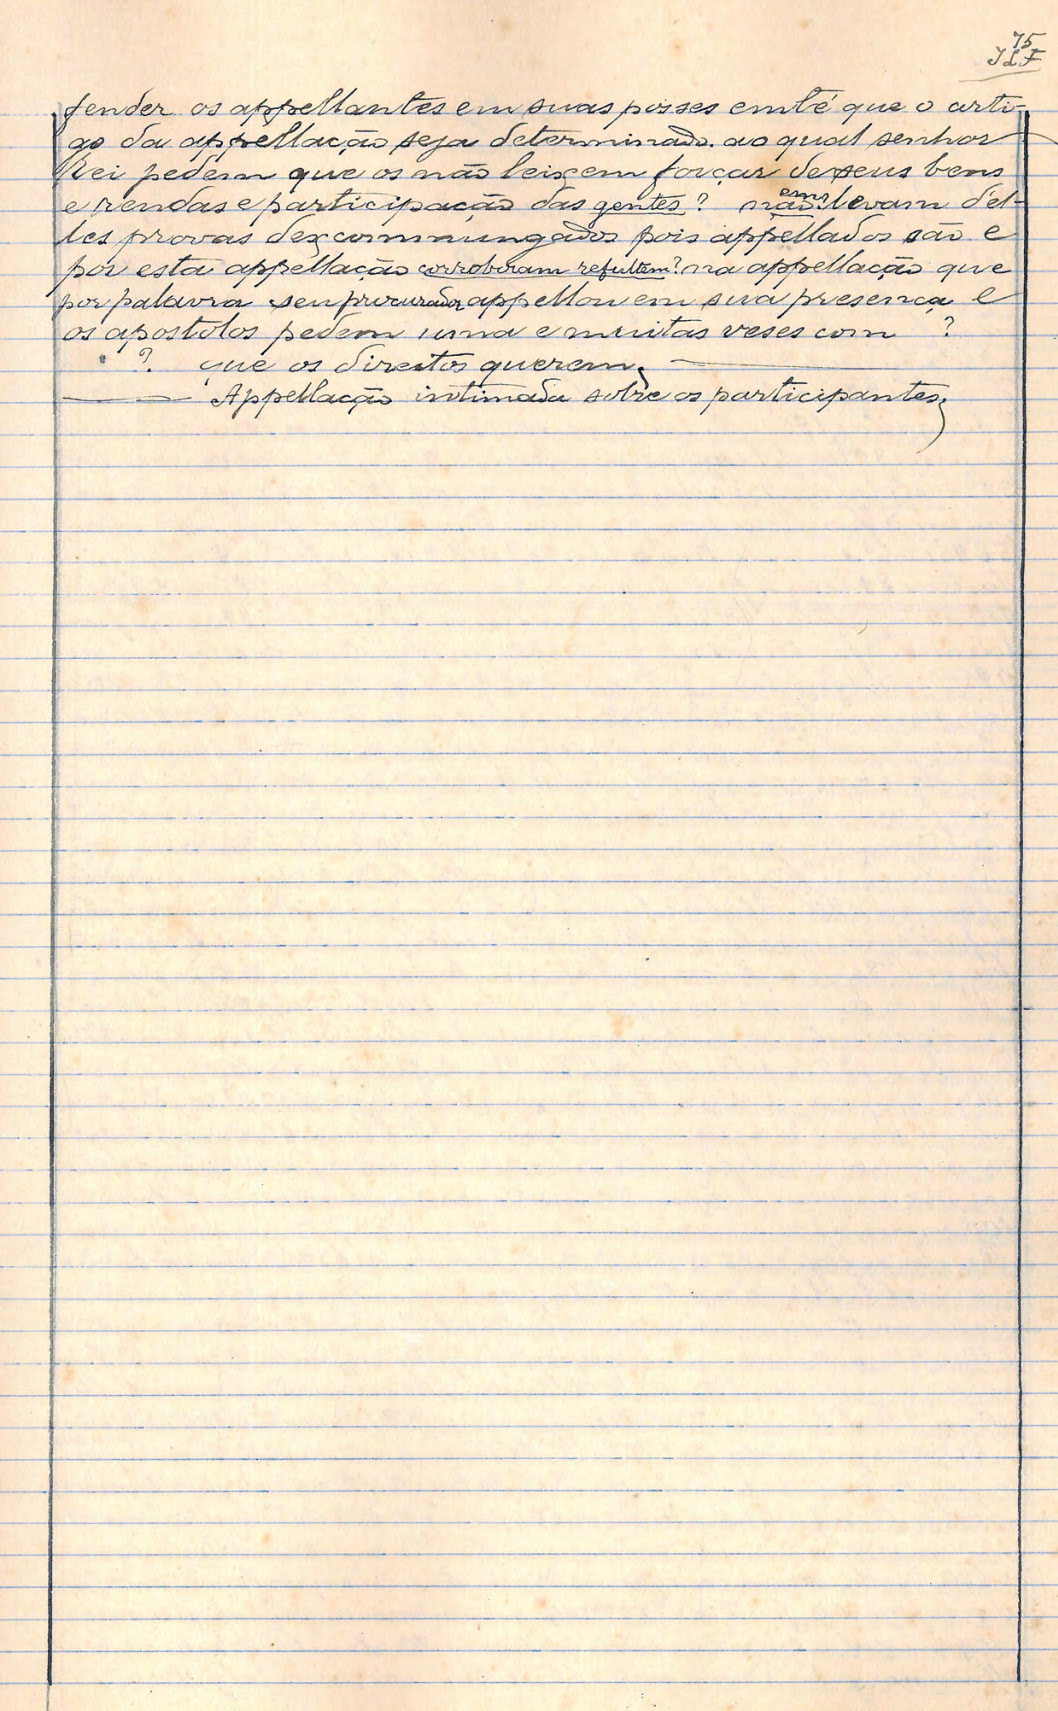 75
JLF
fender os appellantes em suas posses emté que o arti-
go da appellação seja determinado. ao qual senhor
Rei pedem que os não leixem forçar de seus bens
e rendas e participação das gentes? não levam del-
em?
les provas dexcommungados pois appellados são e
por esta appellação corroboram refultem? na appellação que
por palavra seu procurador appellou em sua presença e
os apostolos pedem uma e muitas veses com ?
? que os direitos querem.
Appellação intimada sobre os participantes;